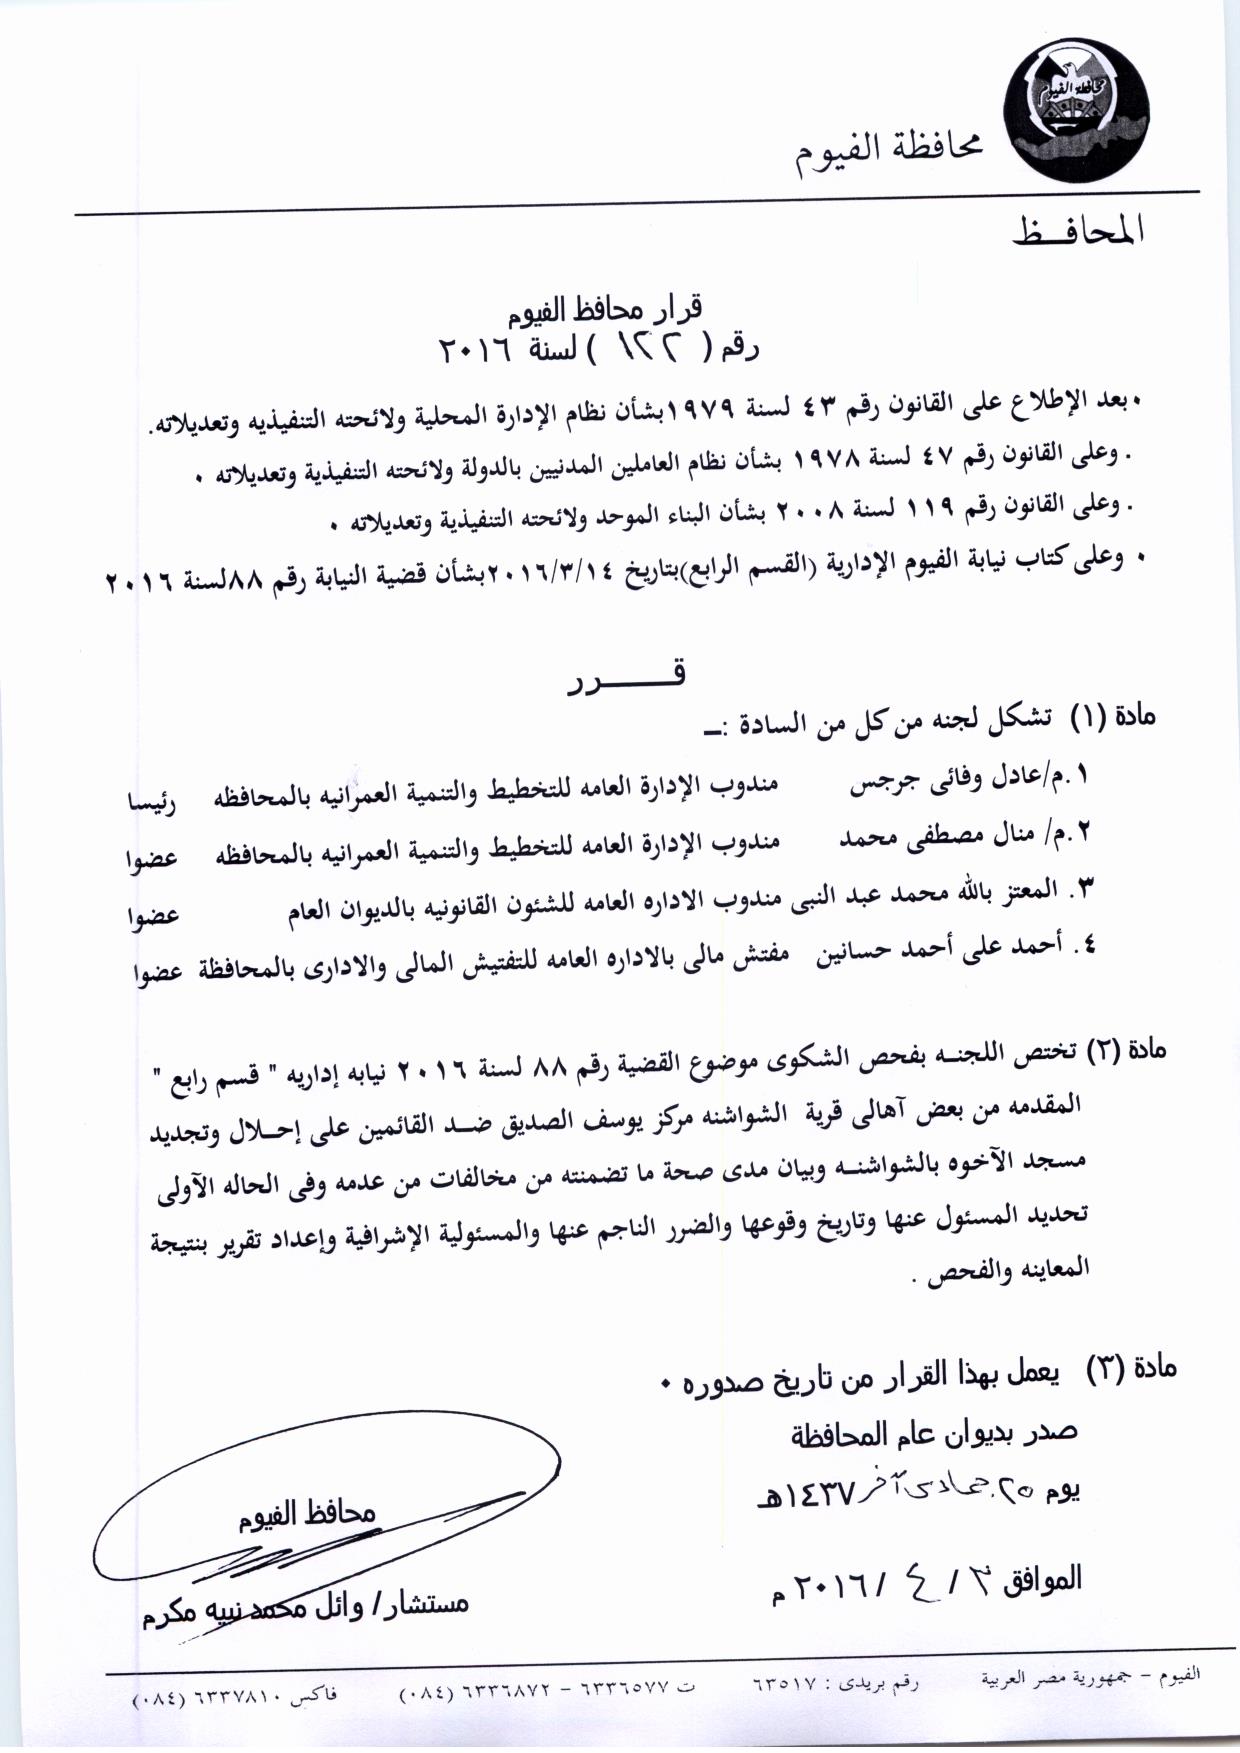 محافظة الفيوم
محافظة الفيوم
المحافـــظ
قرار محافظ الفيوم
رقم ( ١٢٢ ) لسنة ٢٠١٦
٠ بعد الإطلاع على القانون رقم ٤٣ لسنة ١٩٧٩بشأن نظام الإدارة المحلية ولائحته التنفيذيه وتعديلاته.
. وعلى القانون رقم ٤٧ لسنة ١٩٧٨ بشأن نظام العاملين المدنيين بالدولة ولائحته التنفيذية وتعديلاته ٠
. وعلى القانون رقم ١١٩ لسنة ٢٠٠٨ بشأن البناء الموحد ولائحته التنفيذية وتعديلاته ٠
٠ وعلى كتاب نيابة الفيوم الإدارية (القسم الرابع)بتاريخ ٢٠١٦/٣/١٤بشأن قضية النيابة رقم ٨٨لسنة ٢٠١٦
قـــــــرر
مادة (١) تشكل لجنه من كل من السادة :ــ
١.م/عادل وفائى جرجس مندوب الإدارة العامه للتخطيط والتنمية العمرانيه بالمحافظه رئيسا
٢.م/ منال مصطفى محمد مندوب الإدارة العامه للتخطيط والتنمية العمرانيه بالمحافظه عضوا
٣. المعتز بالله محمد عبد النبى مندوب الاداره العامه للشئون القانونيه بالديوان العام عضوا
٤. أحمد على أحمد حسانين مفتش مالى بالاداره العامه للتفتيش المالى والادارى بالمحافظة عضوا
مادة (٢) تختص اللجنــه بفحص الشكوى موضوع القضية رقم ٨٨ لسنة ٢٠١٦ نيابه إداريه " قسم رابع "
المقدمه من بعض آهالى قرية الشواشنه مركز يوسف الصديق ضــد القائمين على إحــلال وتجديد
مسجد الآخوه بالشواشنــه وبيان مدى صحة ما تضمنته من مخالفات من عدمه وفى الحاله الآولى
تحديد المسئول عنها وتاريخ وقوعها والضرر الناجم عنها والمسئولية الإشرافية وإعداد تقرير بنتيجة
المعاينه والفحص .
مادة (٣) يعمل بهذا القرار من تاريخ صدوره ٠
صدر بديوان عام المحافظة
يوم ٢٥ جمادى آخر ١٤٣٧هـ
الموافق ٣ / ٤ / ٢٠١٦ م
محافظ الفيوم
مستشار/ وائل محمد نبيه مكرم
الفيوم – جمهورية مصر العربية رقم بريدى : ٦٣٥١٧ ت ٦٣٣٦٥٧٧ – ٦٣٣٦٨٧٢ (٠٨٤) فاكس ٦٣٣٧٨١٠ (٠٨٤)